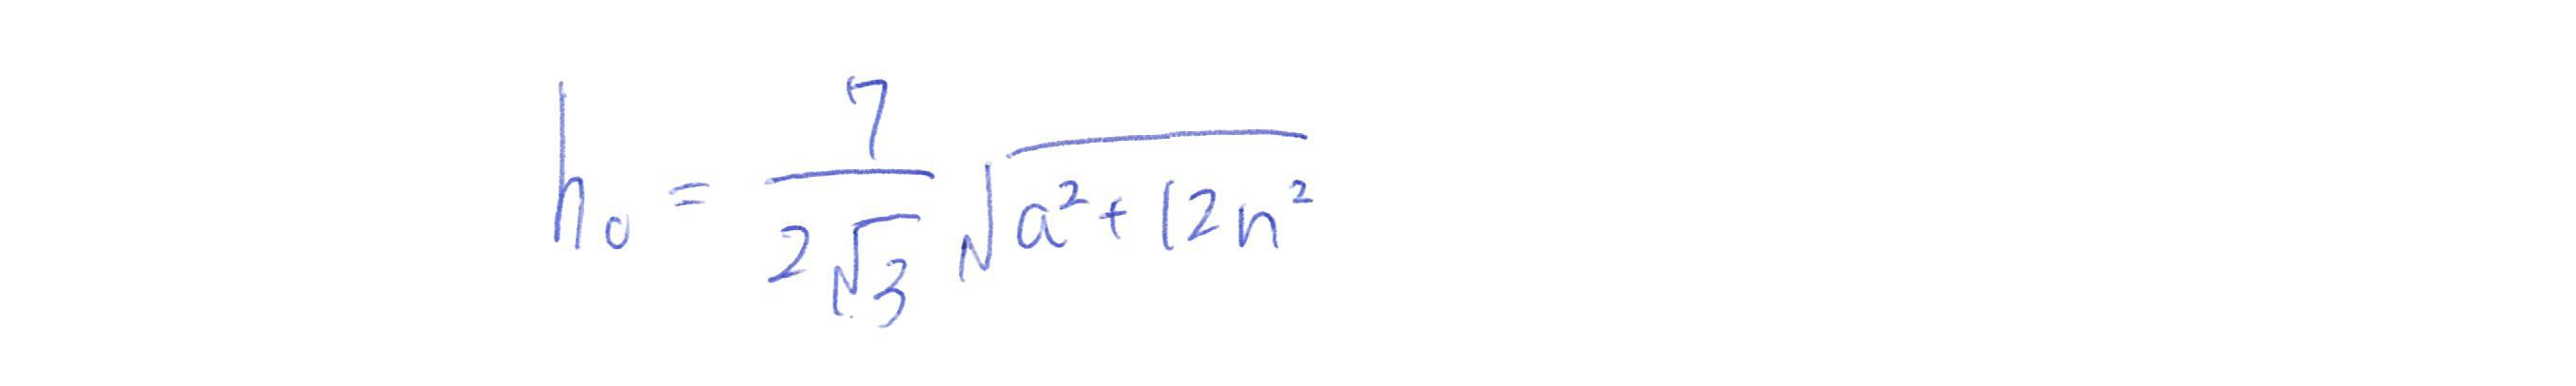 h₀ = 7/(2√3) √(a² + 12n²)